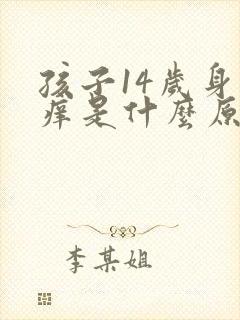 孩子14歲身
癢是什麼原
李某姐